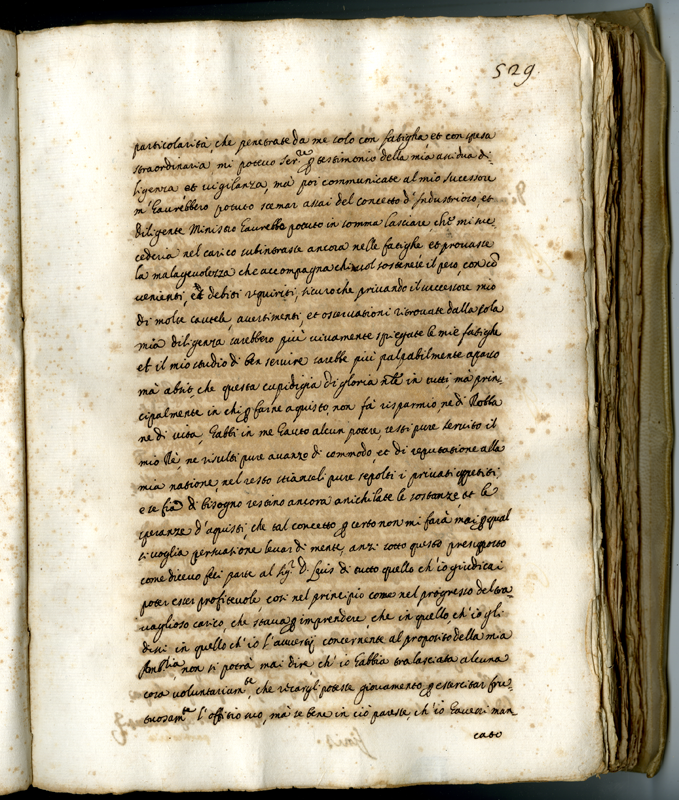 529.
particolarità che penetrate da me solo con fatigha et con spesa
straordinaria mi poteuo ser.re p testimonio della mia assidua di-
ligenza et uigilanza, mà poi communicate al mio sucessore
m'hauerebbero potuto scemar assai del concetto d'Industrioso, et
diligente Ministro haurebbe potuto in somma lasciare che mi suc
cederia nel carico subintrasse ancora nelle fatighe et prouasse
la malageuolezza che accompagna chi uol sostenere il peso, con cõ
uenienti, et debiti requisiti, sicuro che priuando il successore mio
di molte cautele, auertimenti, et osseruationi ritrouate dalla sola
mia diligenza sarebbero più uiuamente spiegate le mie fatighe
et il mio studio di ben seruire sarebbe più palpabilmente aparso
mà absit, che questa cupidigia di gloria n.le in tutti mà prin-
cipalmente in chi p farne aquisto non fà risparmio ne di Robba
ne di uita, habbi in me hauto alcun potere, resti pure seruito il
mio Rè ne risulti pure auanzo di commodo, et di reputatione alla
mia natione, nel resto stianuli pure sepolti i priuati appetiti
e se fia di bisogno restino ancora anichilate le sostanze et le
speranze d'aquisti, che tal concetto p certo non mi farà mai p qual
si uoglia persuasione leuar di mente, anzi sotto questo presuposto
come diceuo feci parte al Sig.r D. Luis di tutto quello ch'io giudicai
poter esser profiteuole così nel principio come nel progresso del tra
uaglioso carico, che staua p imprendere, che in quello ch'io gli
dissi in quello ch'io l'auuertij concernente al proposito della mia
Amb.ria non si potrà mai dire ch'io habbia tralasciata alcuna
cosa uoluntariam.te, che recargl potesse giouamento p essercitar fru-
tuosam.te l'offitio suo, mà se bene in ciò paresse, ch'io hauessi man
cato